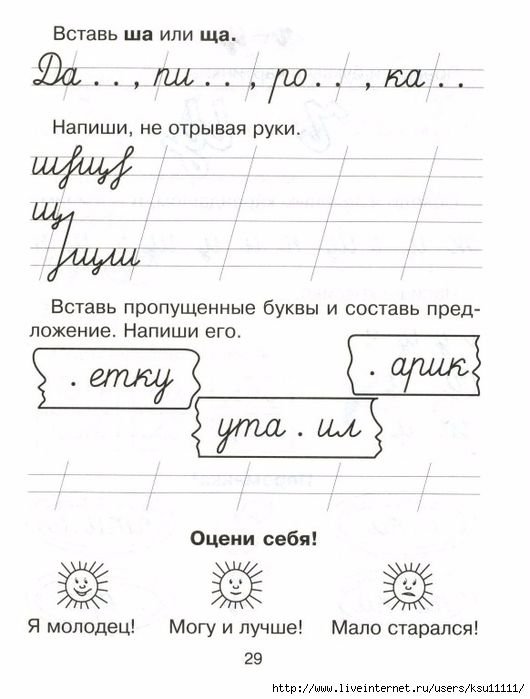 Вставь ша или ща.
Да . . , пи . . , ро . . , ка . .
Напиши, не отрывая руки.
шʒщʒ
щ
щили
Вставь пропущенные буквы и составь пред-
ложение. Напиши его.
. етку
. арик
ута . ил
Оцени себя!
Я молодец!
Могу и лучше!
Мало старался!
29
http://www.liveinternet.ru/users/ksu11111/